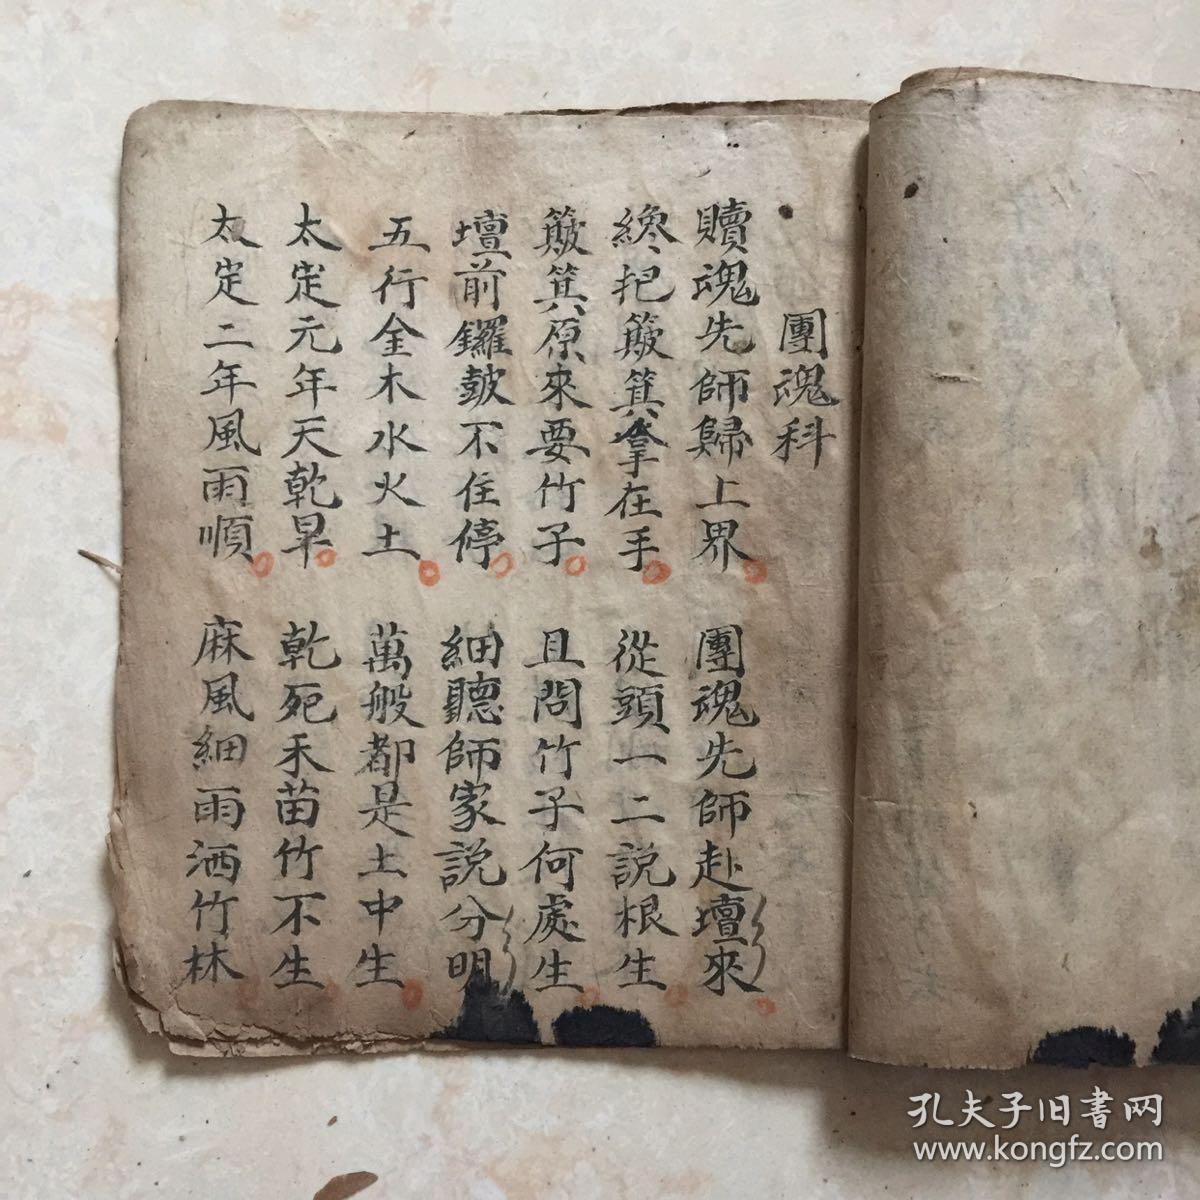 團魂科
贖魂先師歸上界　團魂先師赴壇來
纔把簸箕拿在手　從頭一二説根生
簸箕原來要竹子　且問竹子何處生
壇前鑼鼓不住停　細聽師家説分明
五行金木水火土　萬般都是土中生
太定元年天乾旱　乾死禾苗竹不生
太定二年風雨順　麻風細雨洒竹林
孔夫子旧书网
www.kongfz.com